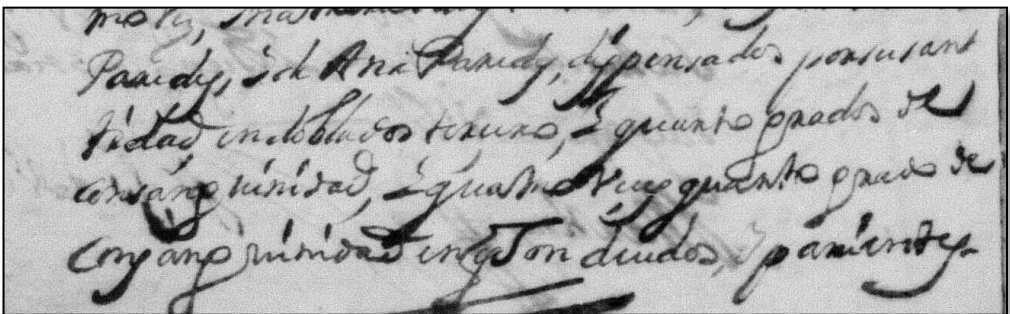 Paredes, i de Ana Paredes, dispensados por su sant
tidad en doblados tercero, i quarto grados de
consanguinidad, i quatro veces quarto grado de
consanguinidad en q̃ son deudos, i parientes